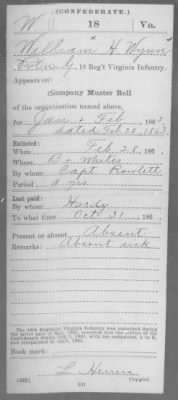 (CONFEDERATE.)
W 18 Va.
William H Wynn
Co. G, 18 Reg't Virginia Infantry.
Appears on
Company Muster Roll
of the organization named above,
for Jan & Feb, 1863.
dated Feb 28, 1863
Enlisted:
When Feb 28, 186
Where
By whom Capt Rowlett
Period 2 yrs
Last paid:
By whom Hardy
To what time Oct 31, 186
Present or absent Absent
Remarks: Absent sick
The 18th Regiment Virginia Infantry was organized during
Book mark:
L. Herrera
(642) Copyist.